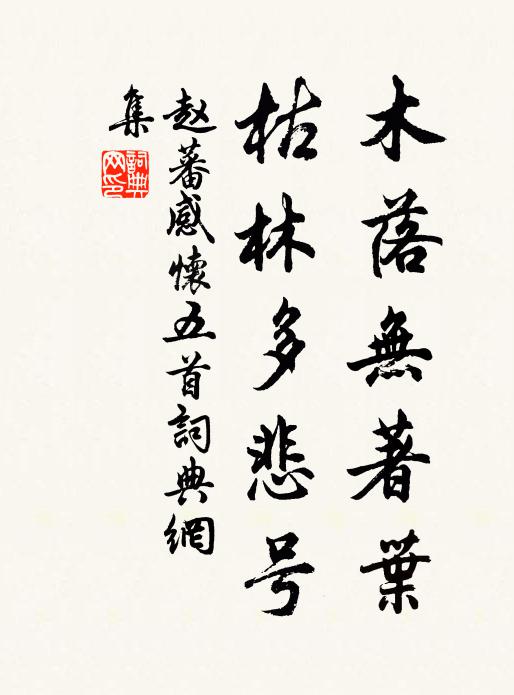 木落無著葉
枯林多悲号
赵蕃感懷五首詞典網
集
詞典
网印